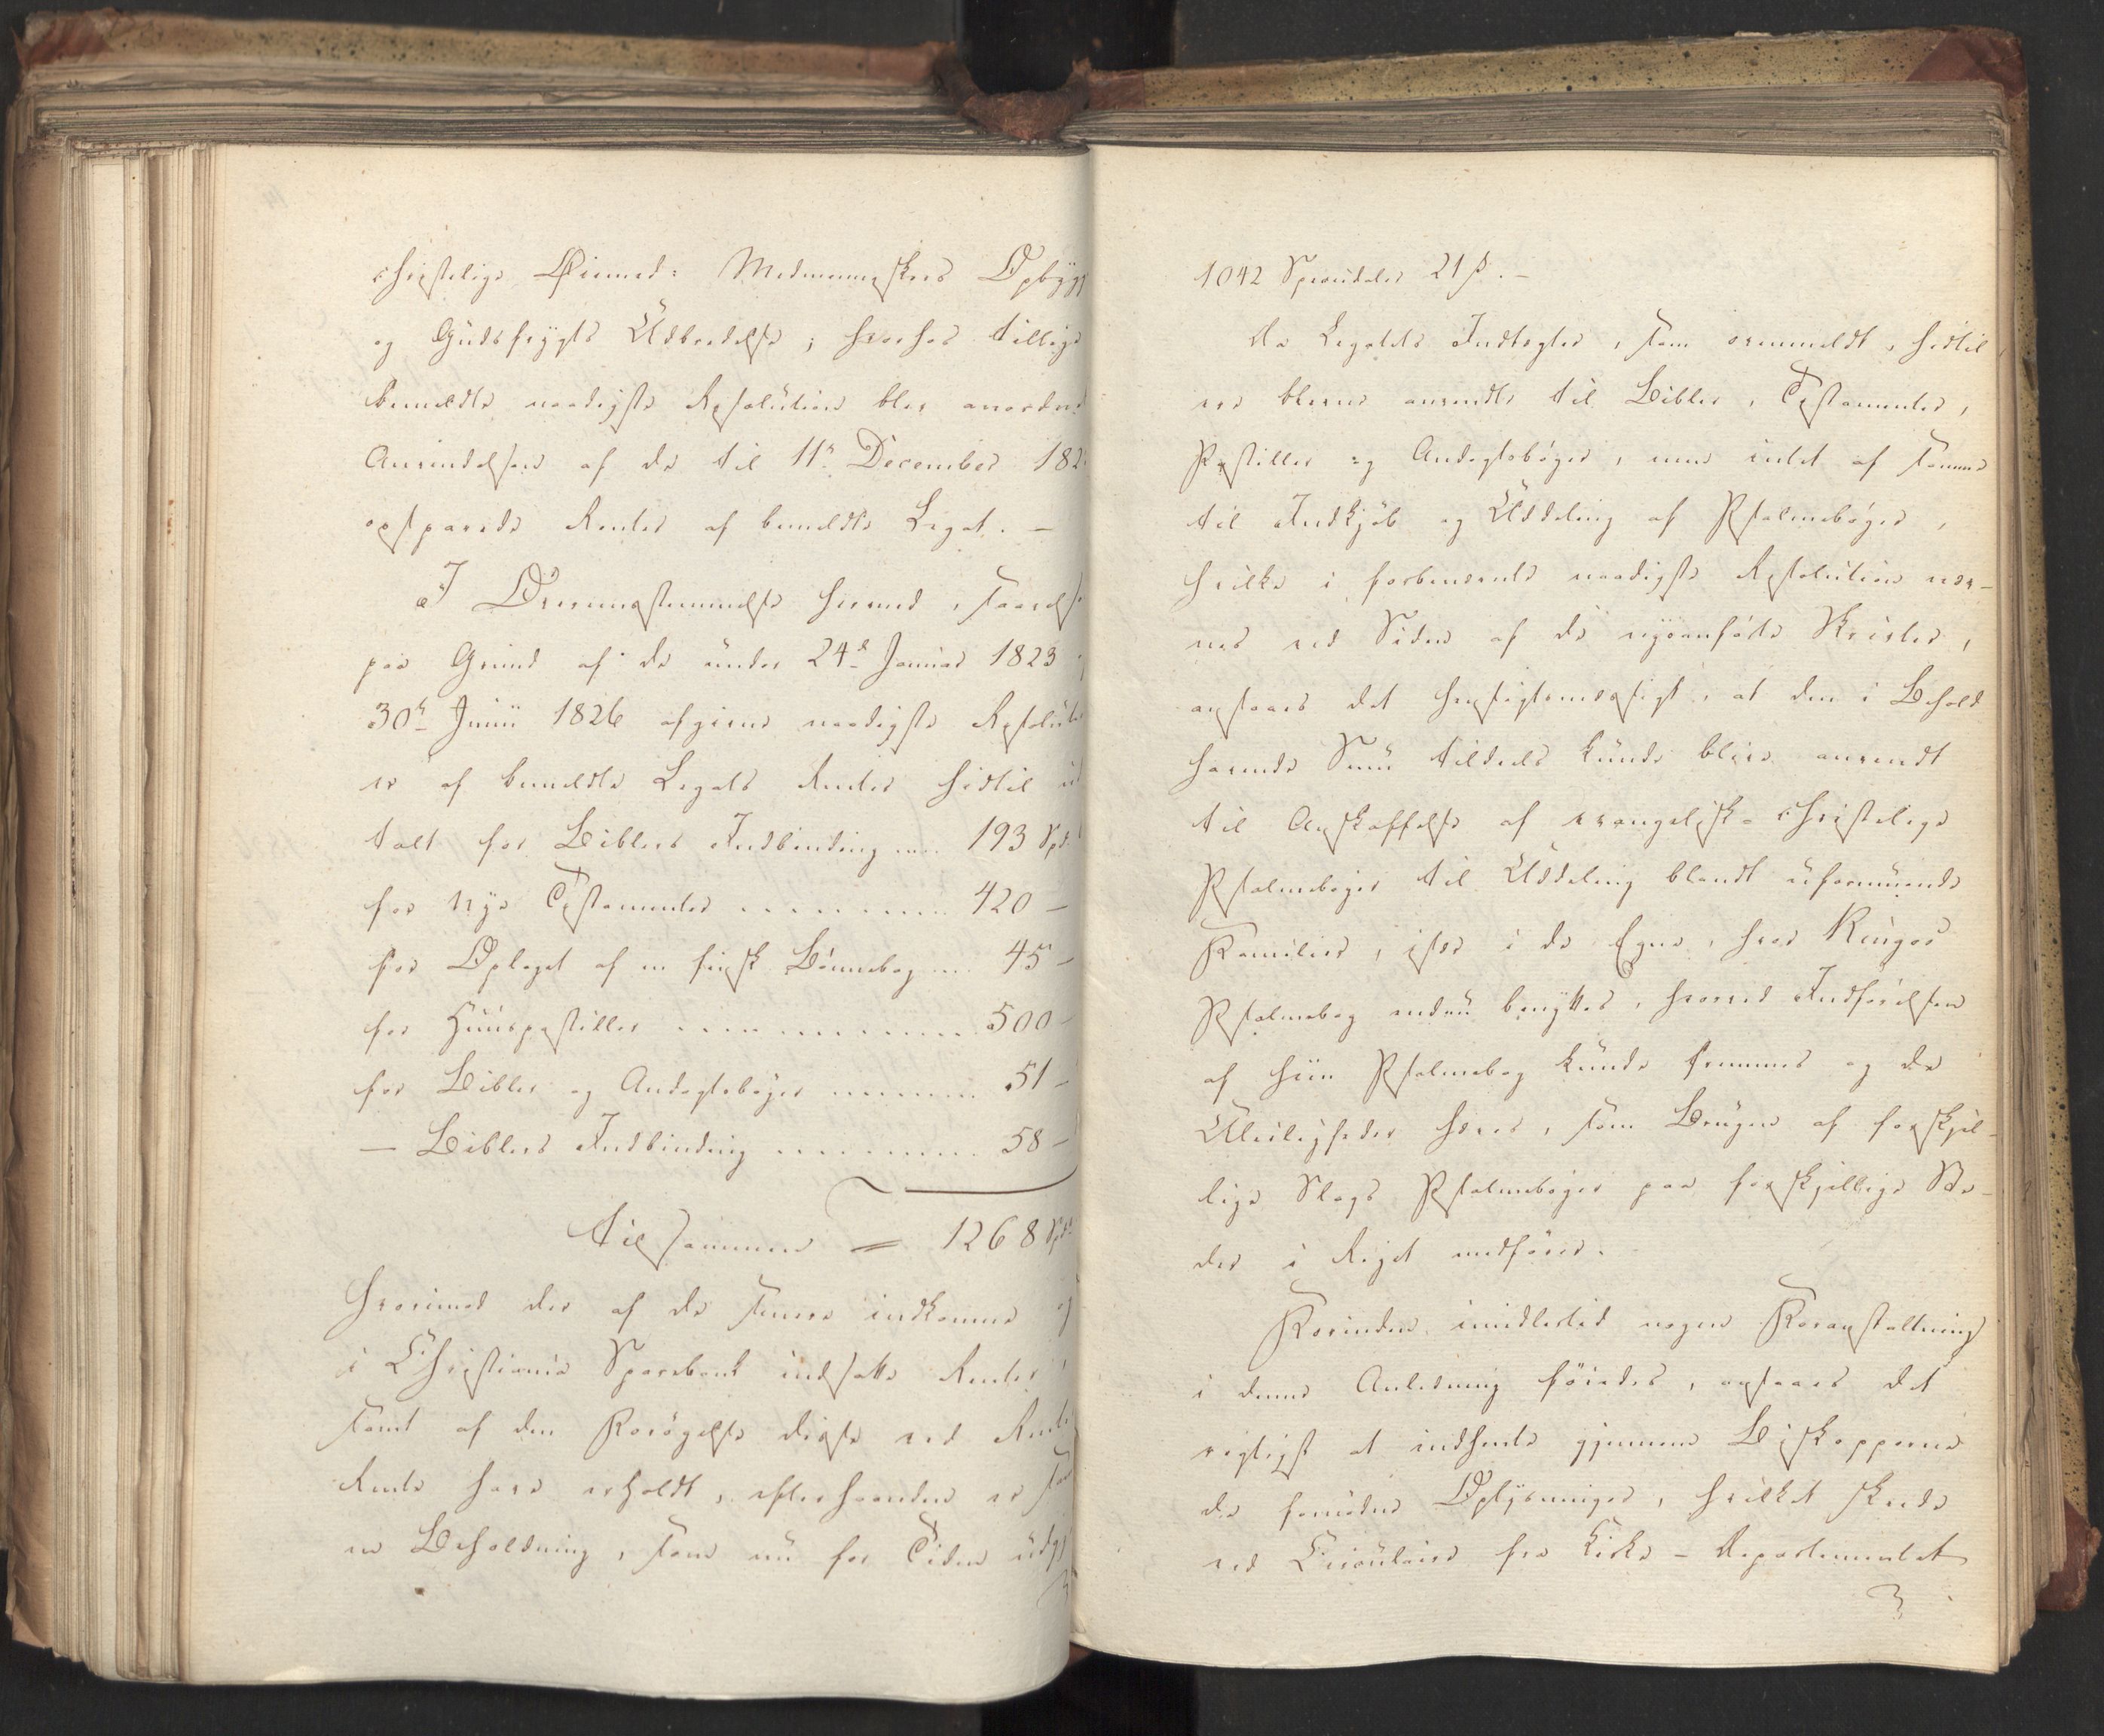 christelige Øiemed: Medmenneskers Opbygg
og Gudsfrygts Udbredelse; hvorhos tillige
bemeldte naadigste Resolution blev anordnet
Anvendelsen af de til 11te December 182
opsparede Renter af bemeldte Legat. –
I Overeensstemmelse hermed, saavelsom
paa Grund af de under 24de Januar 1823 og
30te Junii 1826 afgivne naadigste Resolutio
er af bemeldte Legats Renter hidtil ud
talt for Biblers Indbinding .... 193 Spd.
for nye Testamenter .......... 420 –
for Oplaget af en finsk Bönnebog ... 45 –
for Huuspostiller ............. 500 –
for Bibler og Andagtsböger ........ 51 –
– Biblers Indbinding .......... 58 –
Tilsammen = 1268 Spd.
hvorimod der af de senere indkomne og
i Christiania Sparebank indsatte Renter,
samt af den Forögelse disse ved Rente
Rente have erholdt, efterhaanden er
en Beholdning, som nu for Tiden udgj
1042 Speciedaler 21 ß. –
Da Legatets Indtægter, som ovenmeldt, hidtil
ere blevne anvendte til Bibler, Testamenter,
Postiller og Andagtsböger, men intet af samme
til Indkjöb og Uddeling af Psalmeböger,
hvilke i forbenævnte naadigste Resolution næv-
nes ved Siden af de nysanförte Skrifter,
ansaaes det hensigtsmæssigt, at den i Behold
havende Sum tildeels kunde blive anvendt
til Anskaffelse af evangelisk-christelige
Psalmeböger til Uddeling blandt uformuende
Familier, især i de Egne, hvor Kingos
Psalmebog endnu benyttes, hvorved Indförelsen
af hiin Psalmebog kunde fremmes og de
Uleiligheder hæves, som Brugen af forskjel-
lige Slags Psalmeböger paa forskjellige Ste-
der i Riget medförer.
Forinden imidlertid nogen Foranstaltning
i denne Anledning föiedes, ansaaes det
rigtigst at indhente gjennem Biskopperne
de fornödne Oplysninger, hvilket skeede
ved Circulaire fra Kirke-Departementet